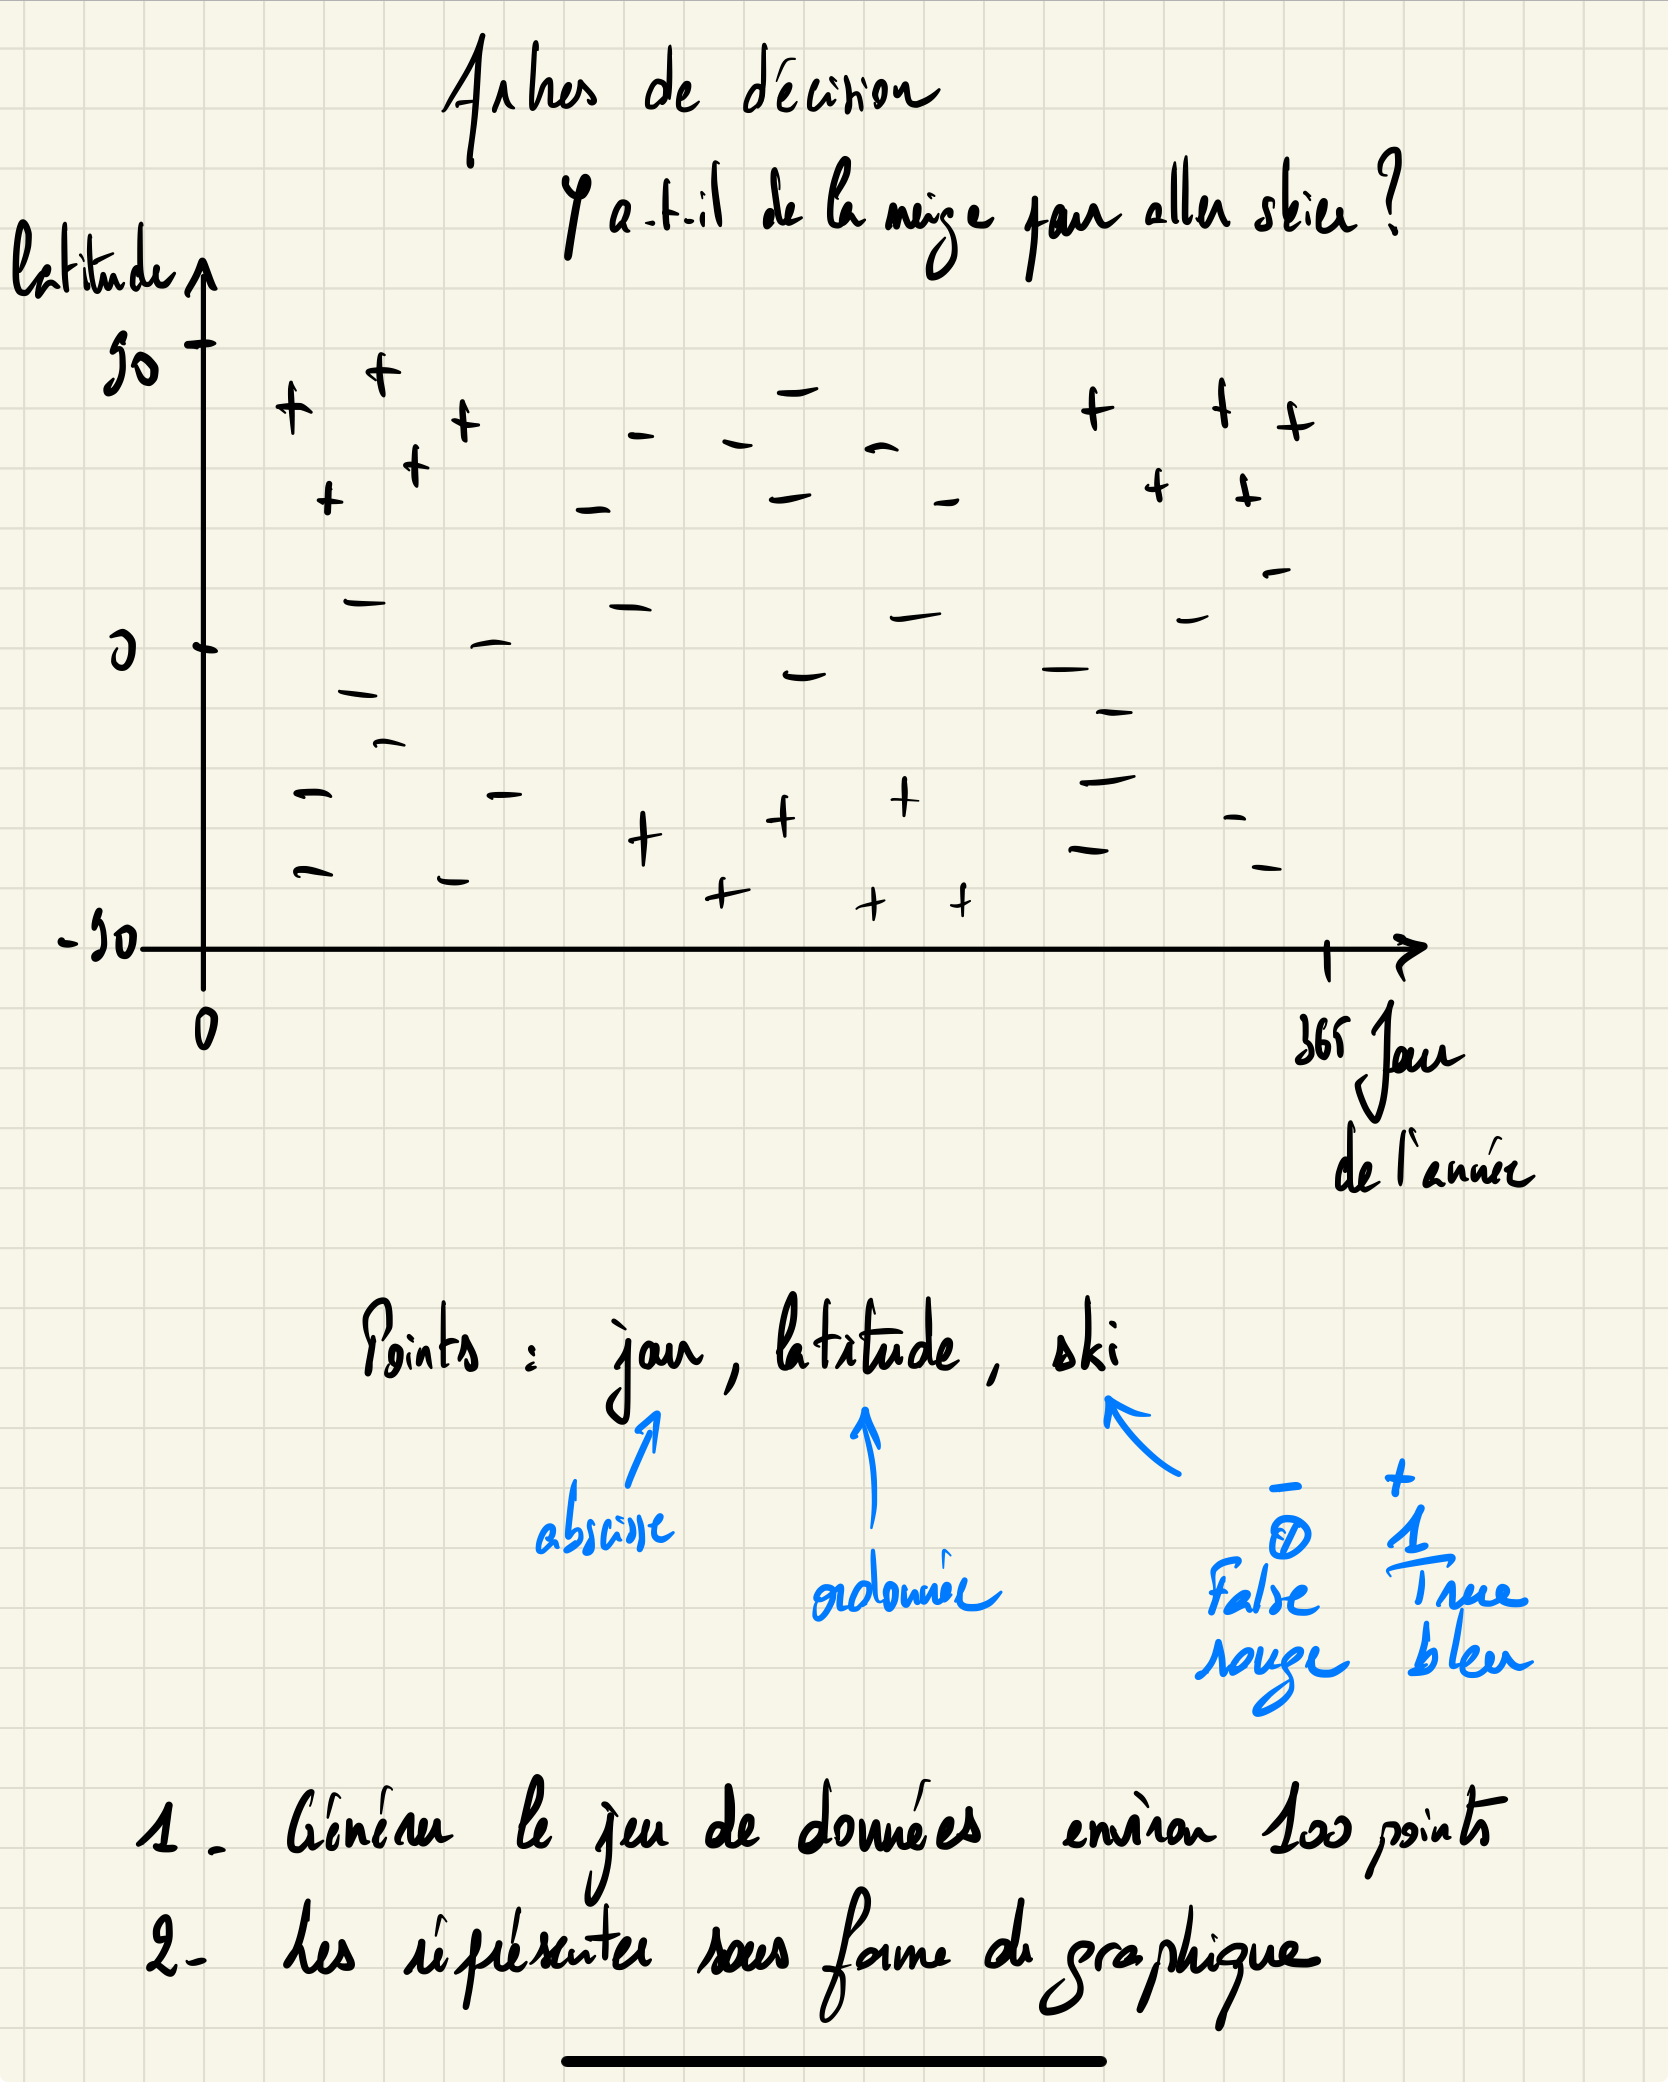 Arbres de décision
Y a-t-il de la neige pour aller skier ?
latitude
90
0
-90
0
365 Jour
de l'année
Points : jour, latitude, ski
abscisse
ordonnée
- +
0 1
False True
rouge bleu
1. Générer le jeu de données environ 100 points
2- Les représenter sous forme de graphique